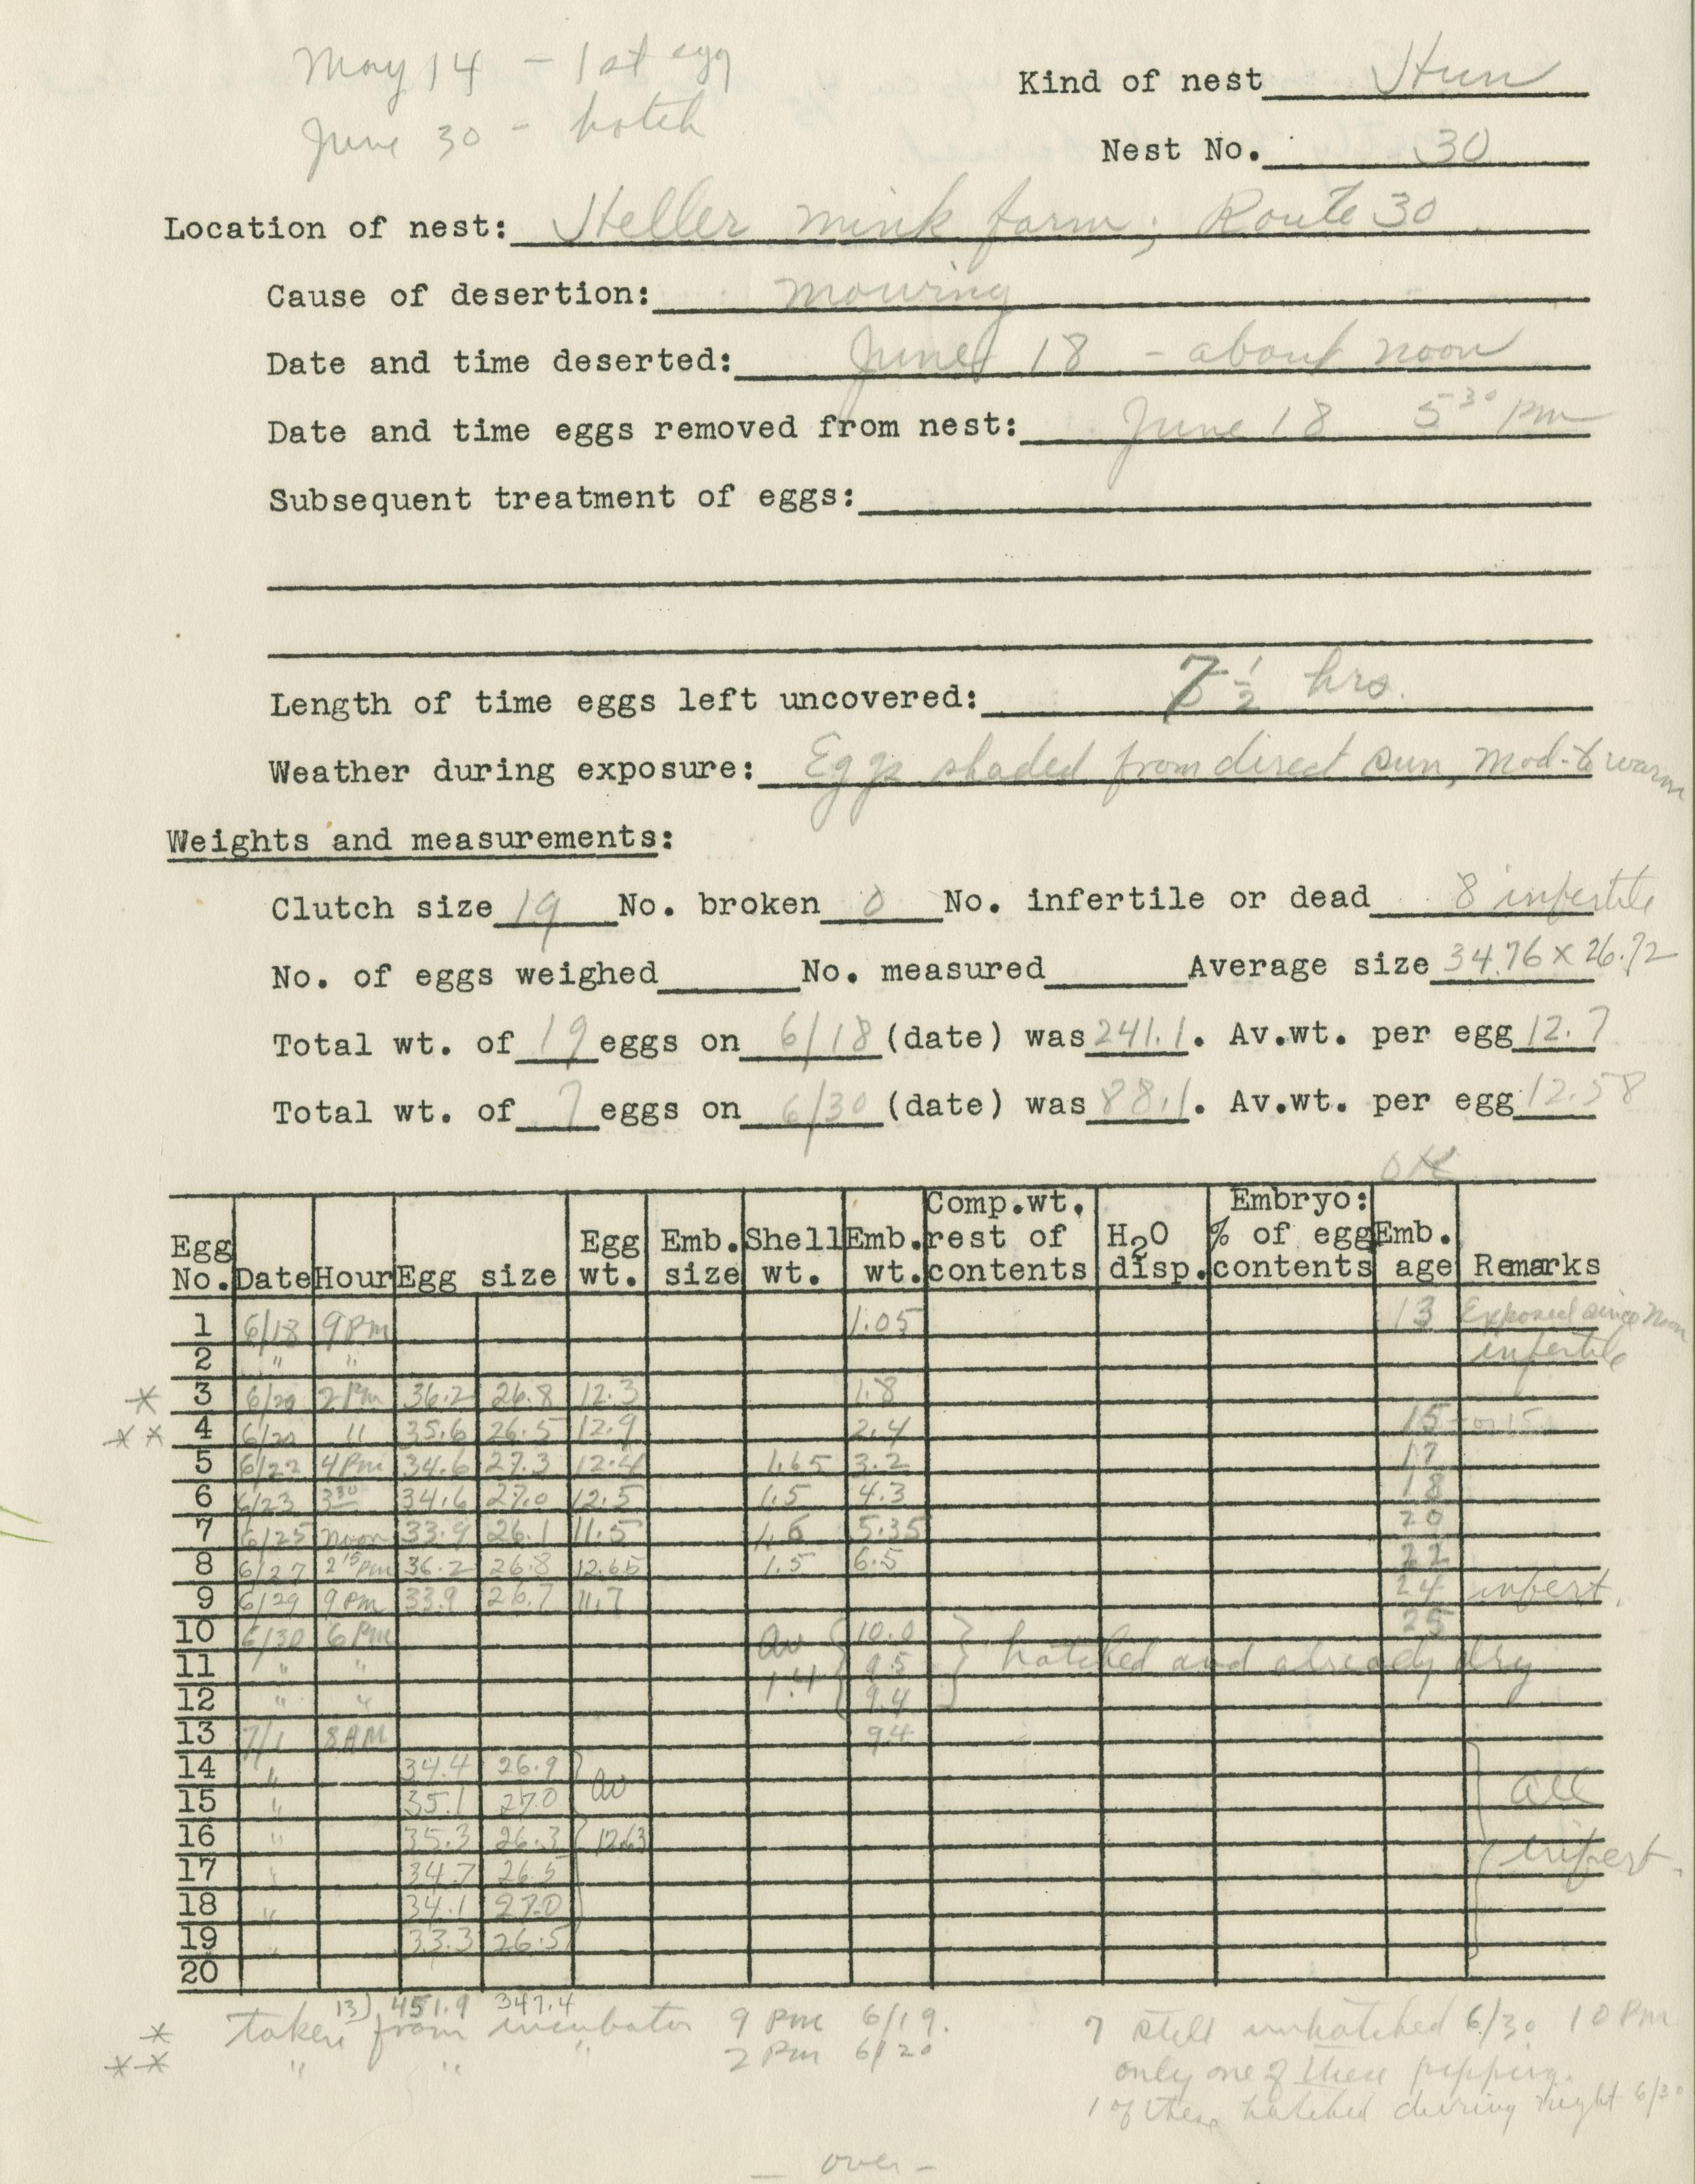 May 14 - 1st egg
June 30 - hatch
Kind of nest Hun
Nest No. 30
Location of nest: Heller mink farm; Route 30
Cause of desertion: mowing
Date and time deserted: June 18 - about noon
Date and time eggs removed from nest: June 18 5 30 pm
Subsequent treatment of eggs:
Length of time eggs left uncovered: 7 1/2 hrs.
Weather during exposure: Eggs shaded from direct sun, mod. to warm
Weights and measurements:
Clutch size 19 No. broken 0 No. infertile or dead 8 infertile
No. of eggs weighed No. measured Average size 34.76 x 26.72
Total wt. of 19 eggs on 6/18 (date) was 241.1. Av.wt. per egg 12.7
Total wt. of 7 eggs on 6/30 (date) was 88.1. Av.wt. per egg 12.58
OK
Egg No. Date Hour Egg size Egg wt. Emb. size Shell wt. Emb. wt. Comp.wt. rest of contents H2O disp. Embryo: % of egg contents Emb. age Remarks
1 6/18 9 PM 1.05 13 Exposed since noon
2 " " infertile
* 3 6/20 2 PM 36.2 26.8 12.3 1.8
** 4 6/20 " 35.6 26.5 12.9 2.4 15 - or 15
5 6/22 4 PM 34.6 27.3 12.4 1.65 3.2 17
6 6/23 3 30 34.6 27.0 12.5 1.5 4.3 18
7 6/25 Noon 33.9 26.1 11.5 1.6 5.35 20
8 6/27 2 15 PM 36.2 26.8 12.65 1.5 6.5 22
9 6/29 9 PM 33.9 26.7 11.7 24 infert.
10 6/30 6 PM Av 10.0 25
11 " " 1.4 9.5 hatched and already dry
12 " " 9.4
13 7/1 8 AM 9.4
14 " 34.4 26.9 Av
15 " 35.1 27.0 all
16 " 35.3 26.3 12.63
17 " 34.7 26.5 infert.
18 " 34.1 27.0
19 " 33.3 26.5
20
13) 451.9 347.4
* taken from incubator 9 PM 6/19.
** " " " 2 PM 6/20
7 still unhatched 6/30 10 PM
only one of these pipping.
1 of these hatched during night 6/30
- over -